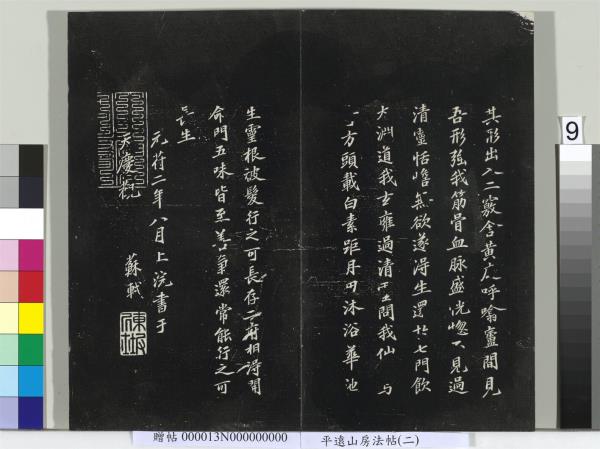 其形出入二竅舍黃庭呼噏廬間見
吾形强我筋骨血脉盛恍惚不見過
清靈恬憺無欲遂得生還於七門飲
大淵道我玄雍過清靈問我仙 與
方頭載白素距丹田沐浴華池
生靈根被髮行之可長存二府相得開
命門五味皆至善氣還常能行之可
長生
元符二年八月上浣書于
天慶觀
蘇軾
贈帖 000013N000000000
平遠山房法帖(二)
9